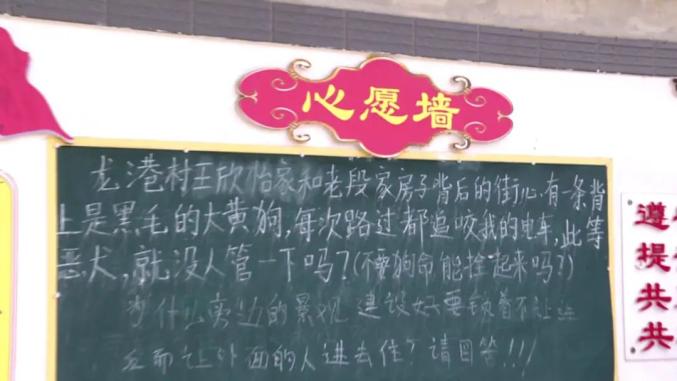 心愿墙
龙港村王欣怡家和老段家房子背后的街心有一条背
上是黑毛的大黄狗，每次路过都追咬我的电车，此等
恶犬，就没人管一下吗？(不要狗命能拴起来吗？)
为什么旁边的景观建设好要锁着不让
反而让外面的人进去住？请回答!!!
遵
提
共
共